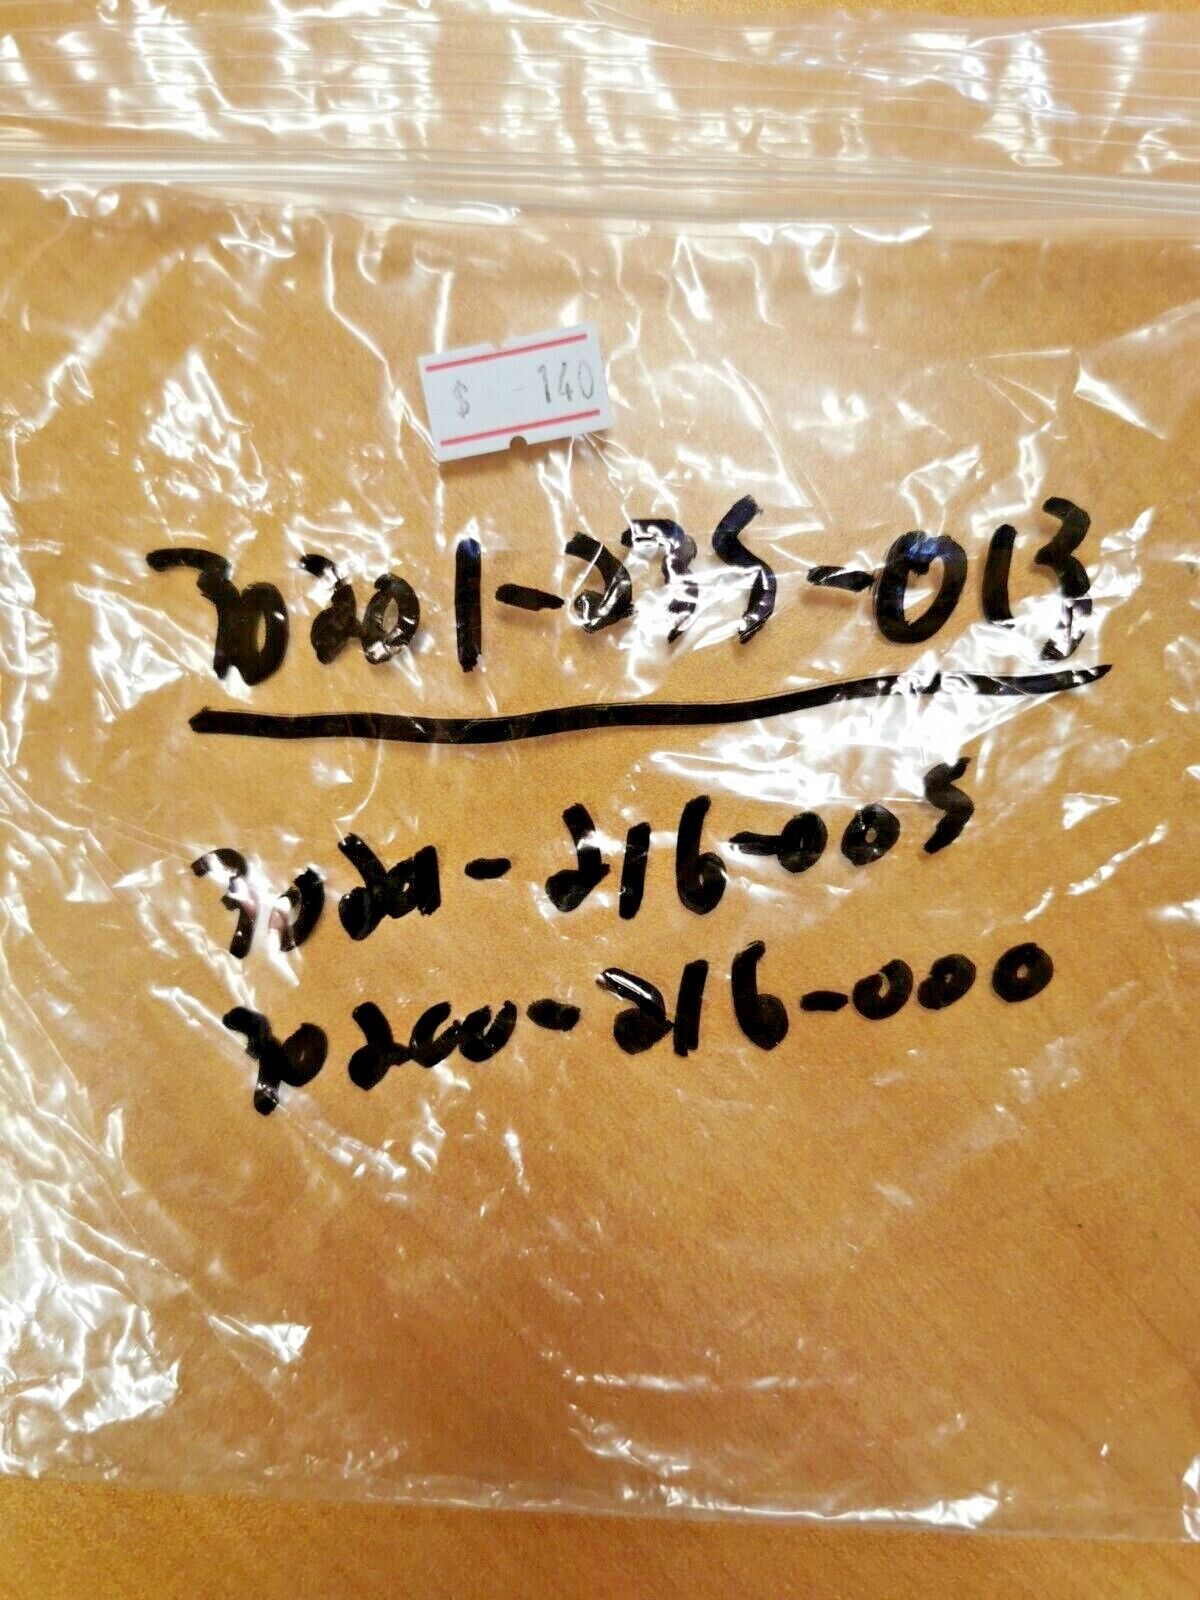 $ -140
30201-235-013
30201-216-005
30200-216-000